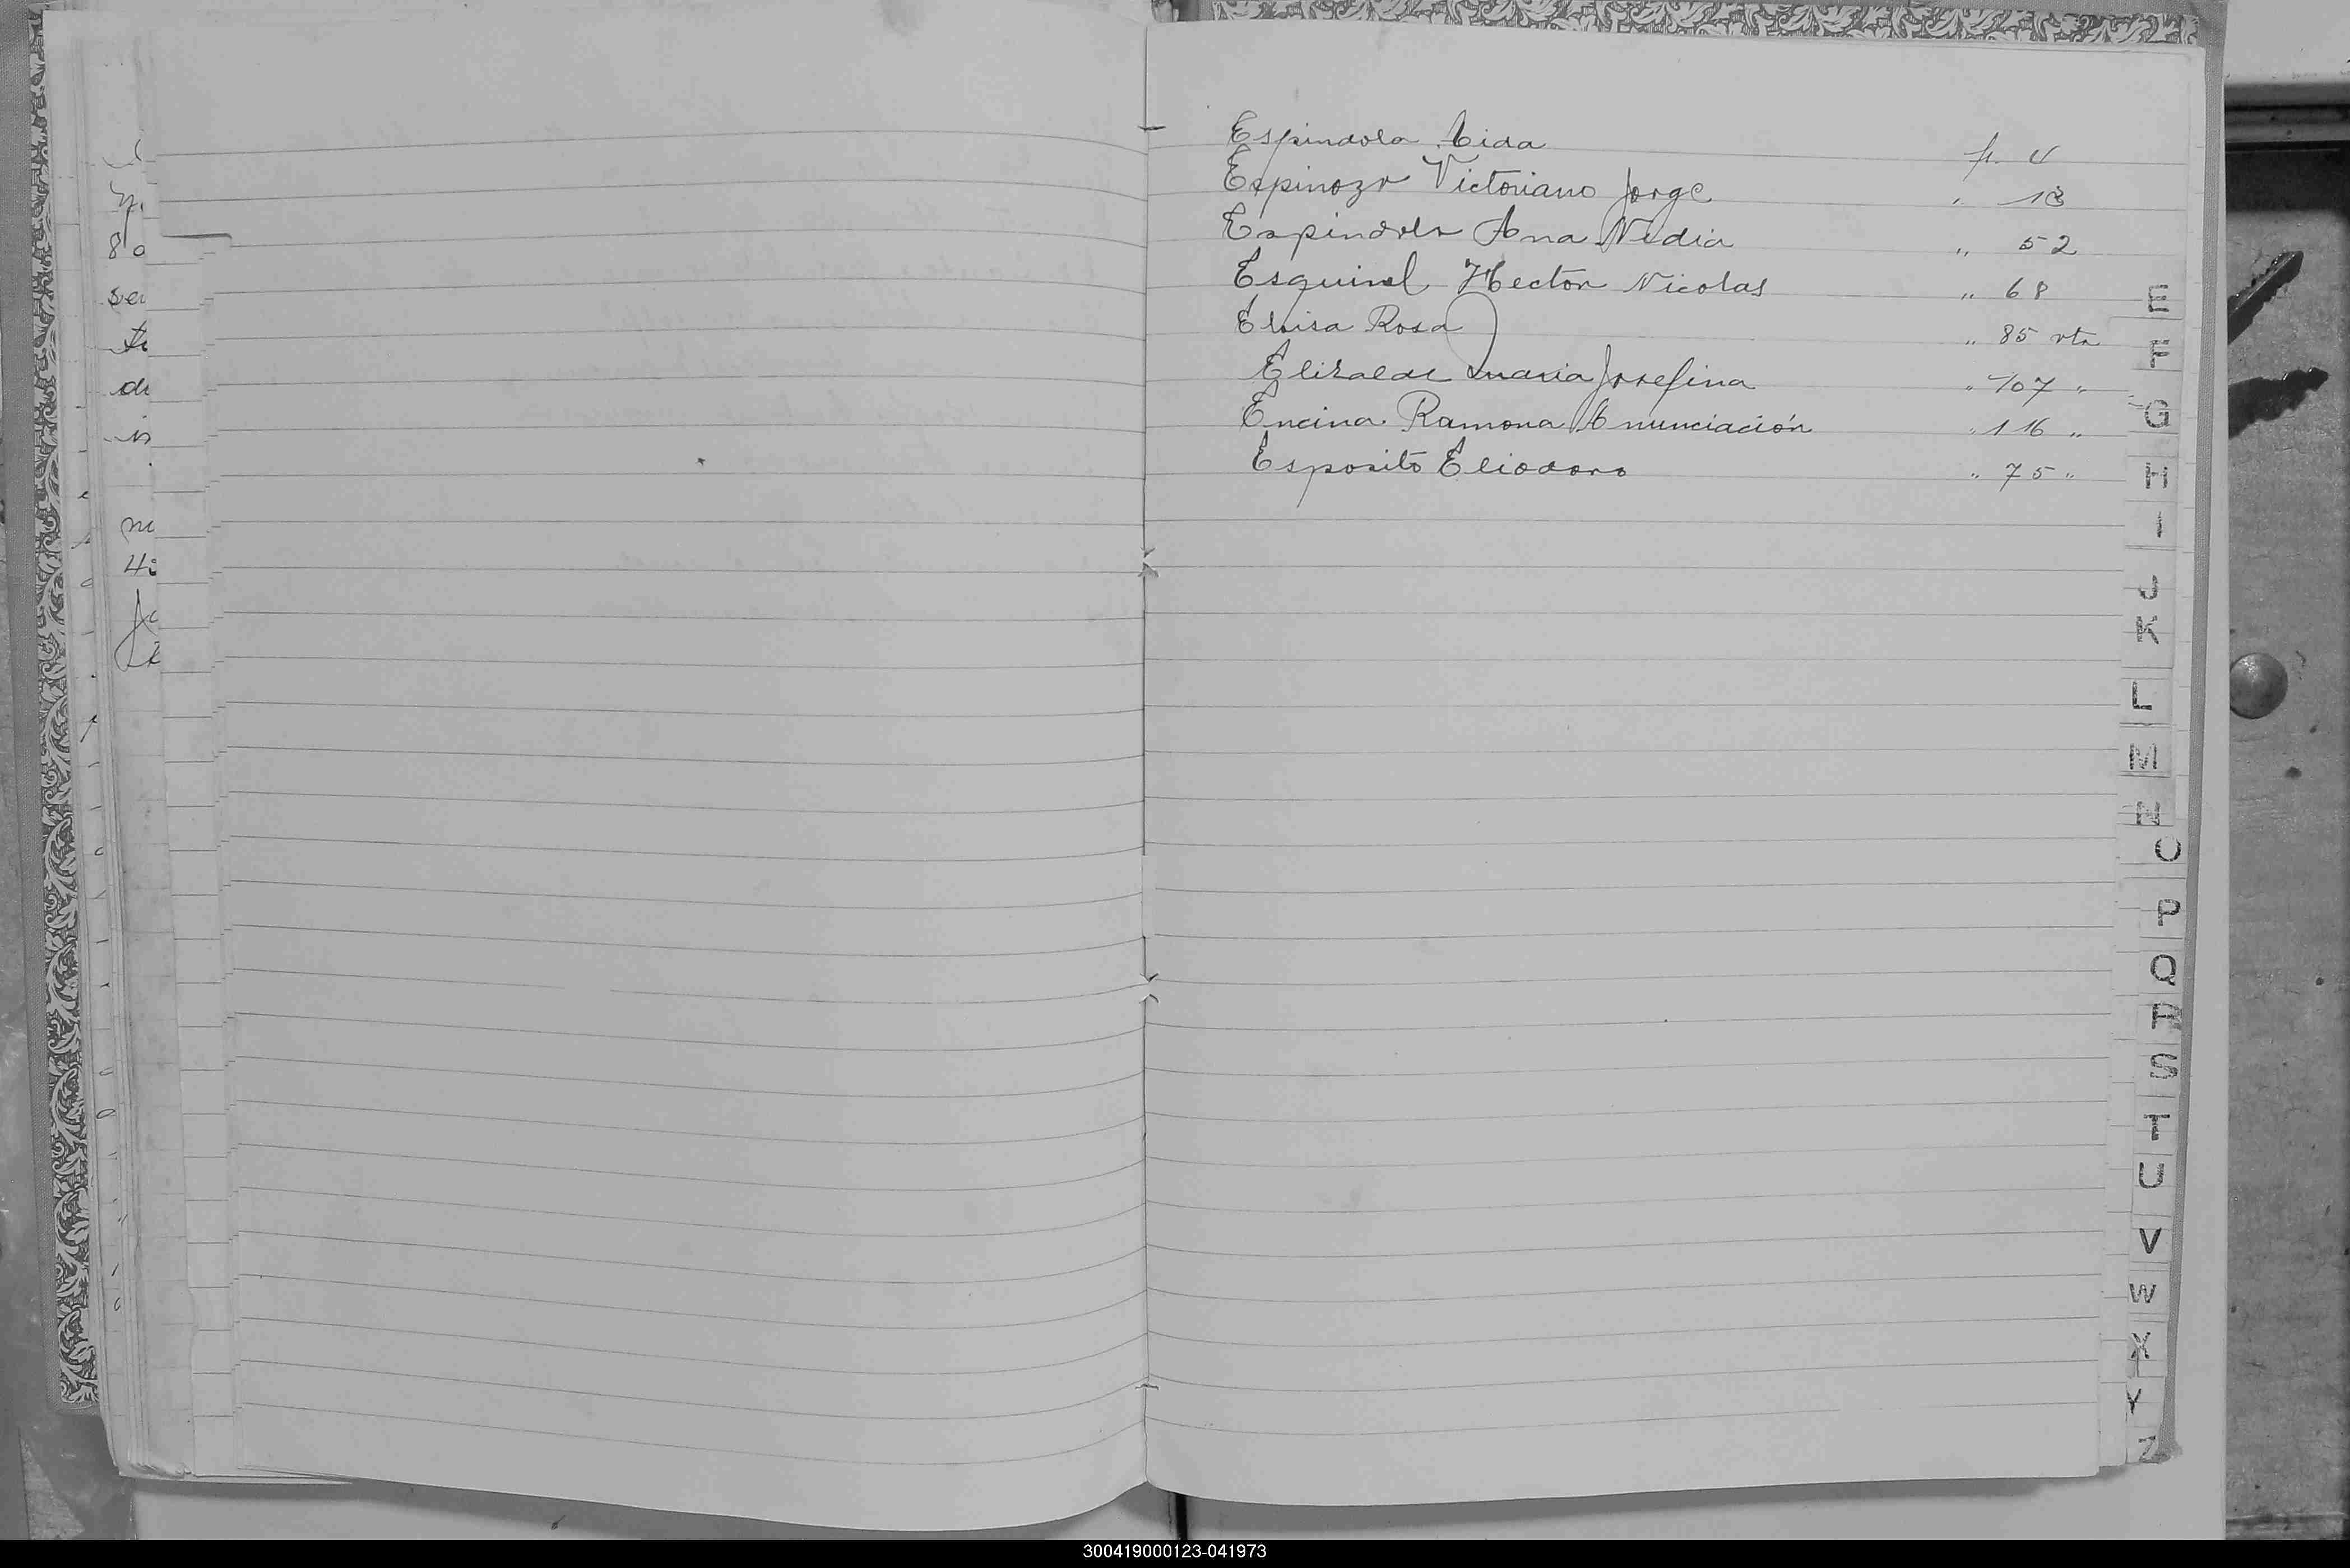 Espindola Aida fs. V
Espinoza Victoriano Jorge " 13
Espindola Ana Nidia " 52
Esquivel Hector Nicolas " 68
Elvisa Rosa " 85 vta
Elizalde Maria Josefina " 107 "
Encina Ramona Anunciación " 116 "
Esposito Eliodoro " 75 "
E
F
G
H
I
J
K
L
M
N
O
P
Q
R
S
T
U
V
W
X
Y
Z
300419000123-041973